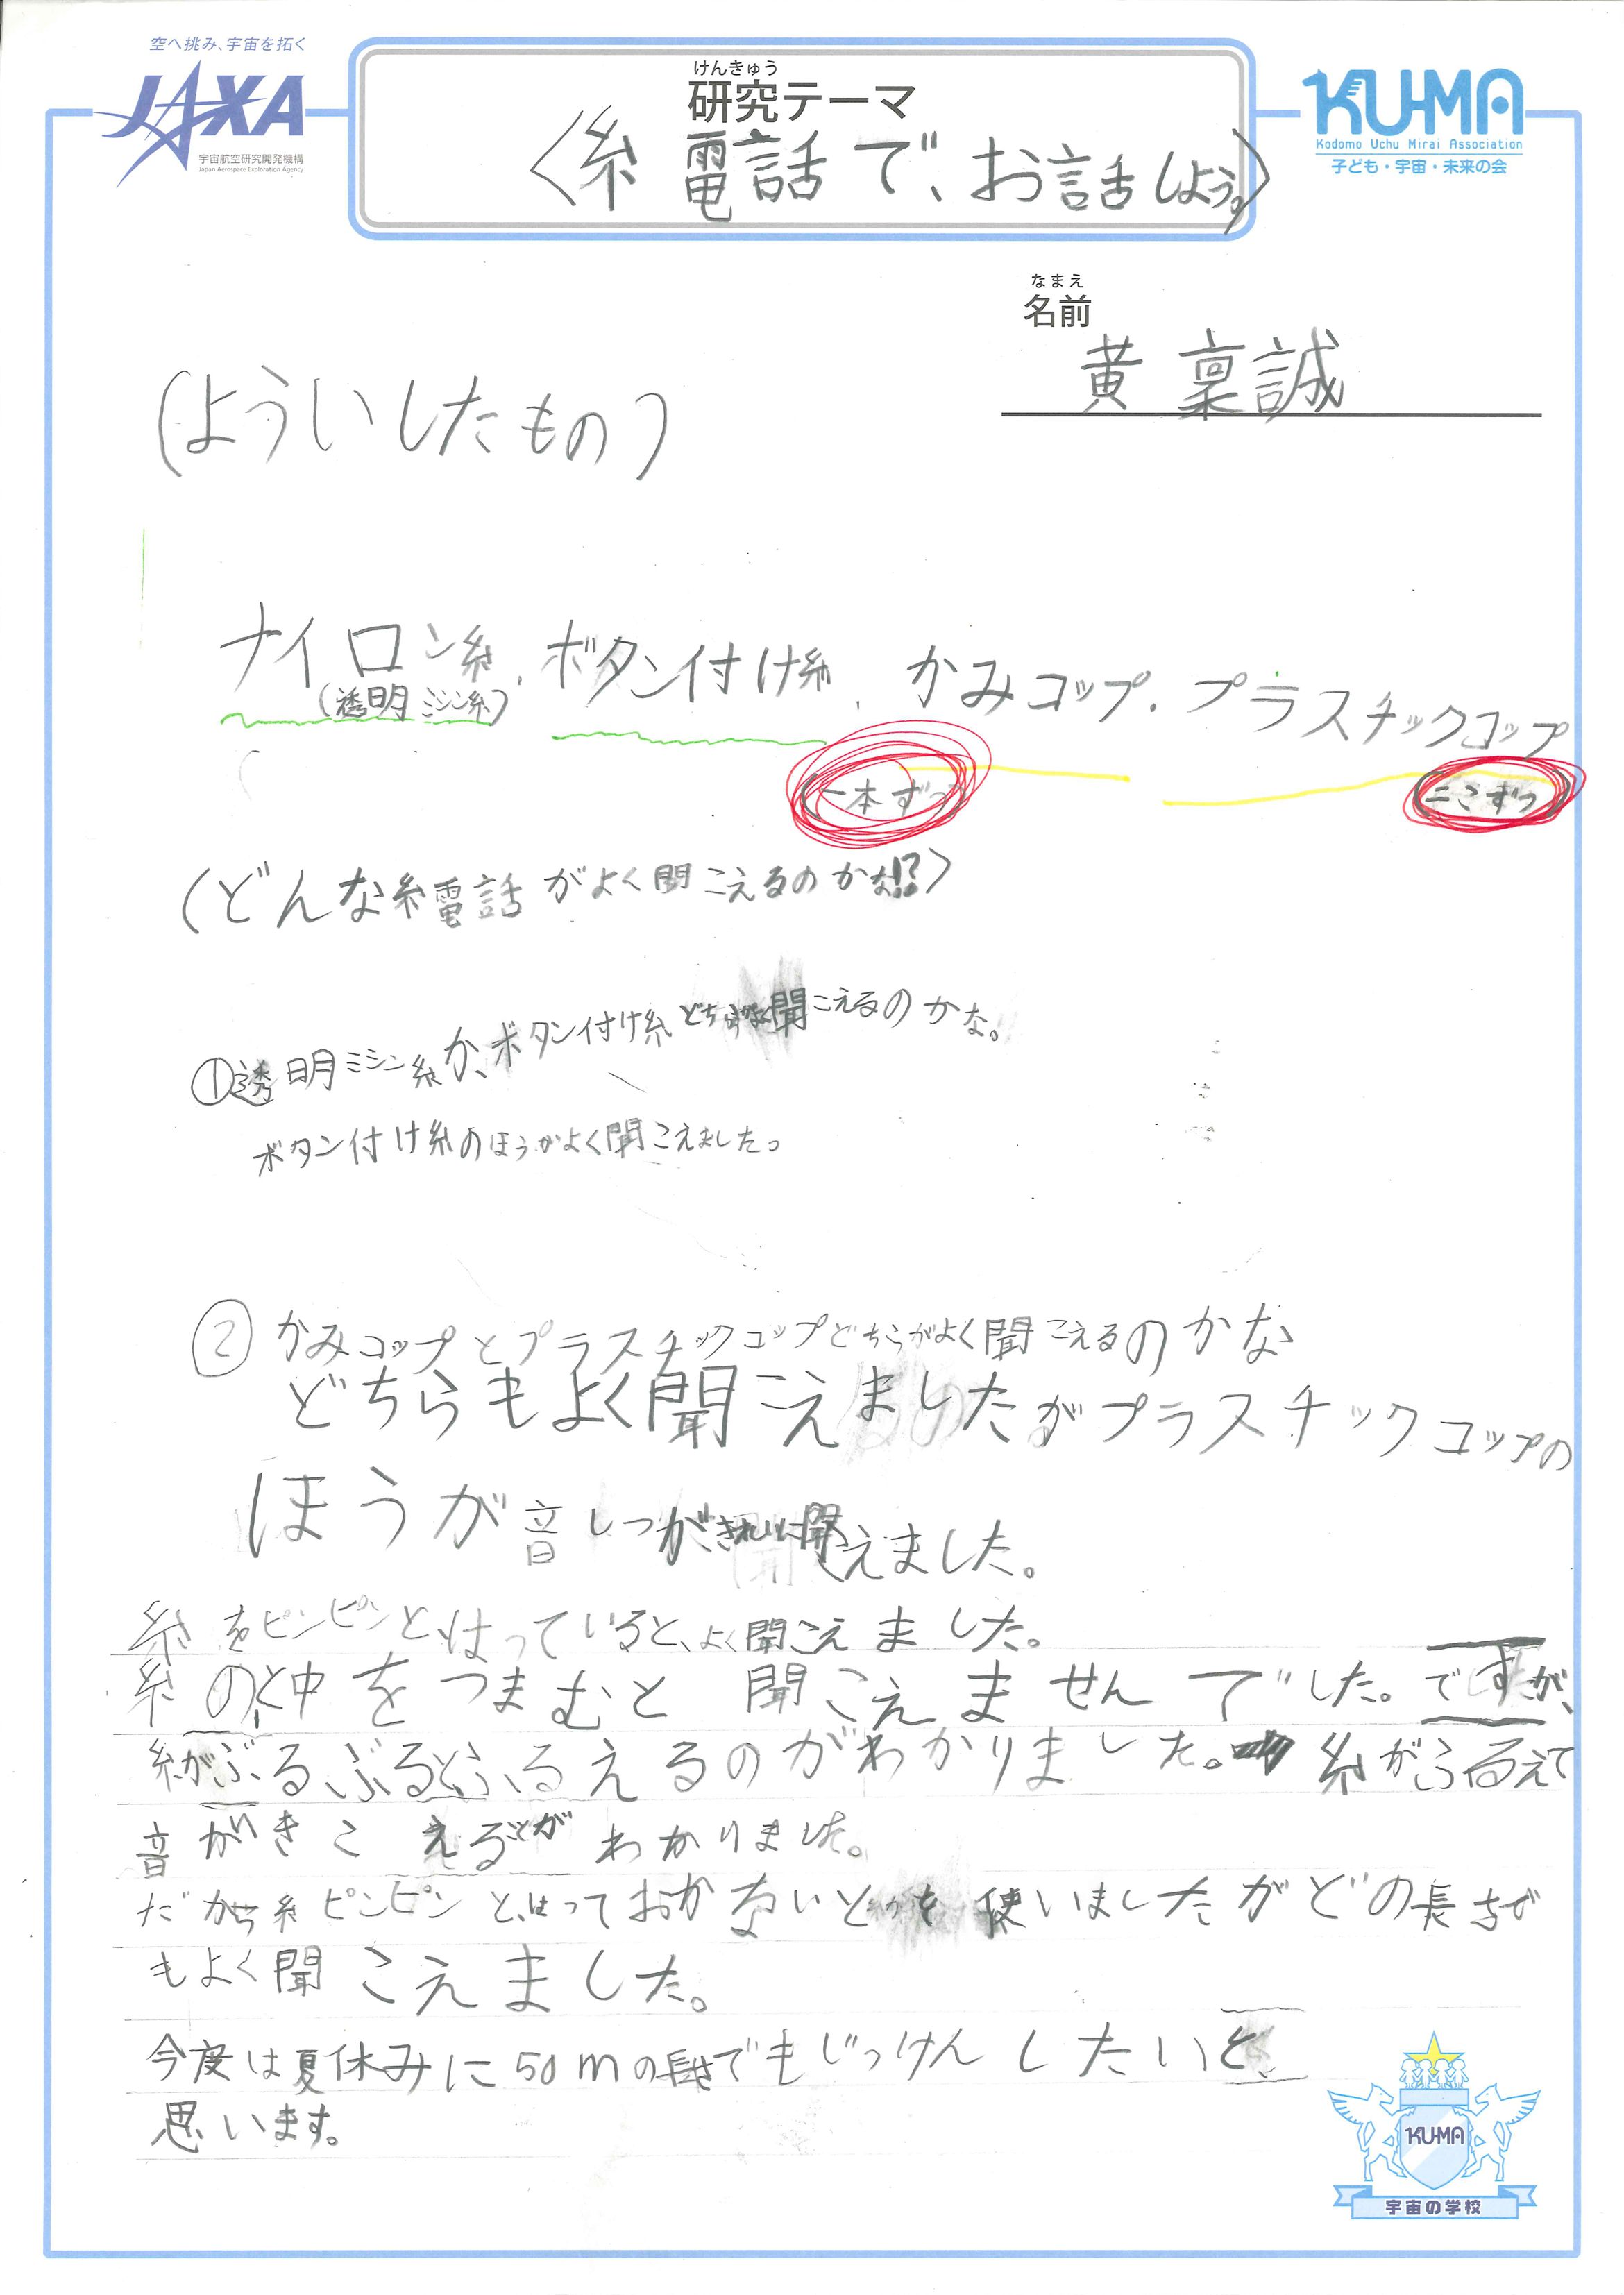 空へ挑み、宇宙を拓く
JAXA
宇宙航空研究開発機構
Japan Aerospace Exploration Agency
けんきゅう
研究テーマ
〈糸電話で、お話しよう。〉
KU-MA
Kodomo Uchu Mirai Association
子ども・宇宙・未来の会
なまえ
名前
黄稟誠
(よういしたもの)
ナイロン糸、ボタン付け糸、かみコップ.プラスチックコップ
(透明ミシン糸)
(一本ずつ)
(二こずつ)
〈どんな糸電話がよく聞こえるのかな!?〉
①透明ミシン糸か、ボタン付け糸どちらがよく聞こえるのかな。
ボタン付け糸のほうがよく聞こえました。
②かみコップとプラスチックコップどちらがよく聞こえるのかな
どちらもよく聞こえましたがプラスチックコップの
ほうが音しつがきれいに聞こえました。
糸をピンピンと、はっていると、よく聞こえました。
糸のと中をつまむと聞こえませんでした。ですが、
糸がぶるぶるとふるえるのがわかりました。糸がふるえて
音がきこえることがわかりました。
だから糸ピンピンと、はっておかないと 使いましたがどの長さで
もよく聞こえました。
今度は夏休みに50mの長さでもじっけんしたいと、
思います。
KU-MA
宇宙の学校